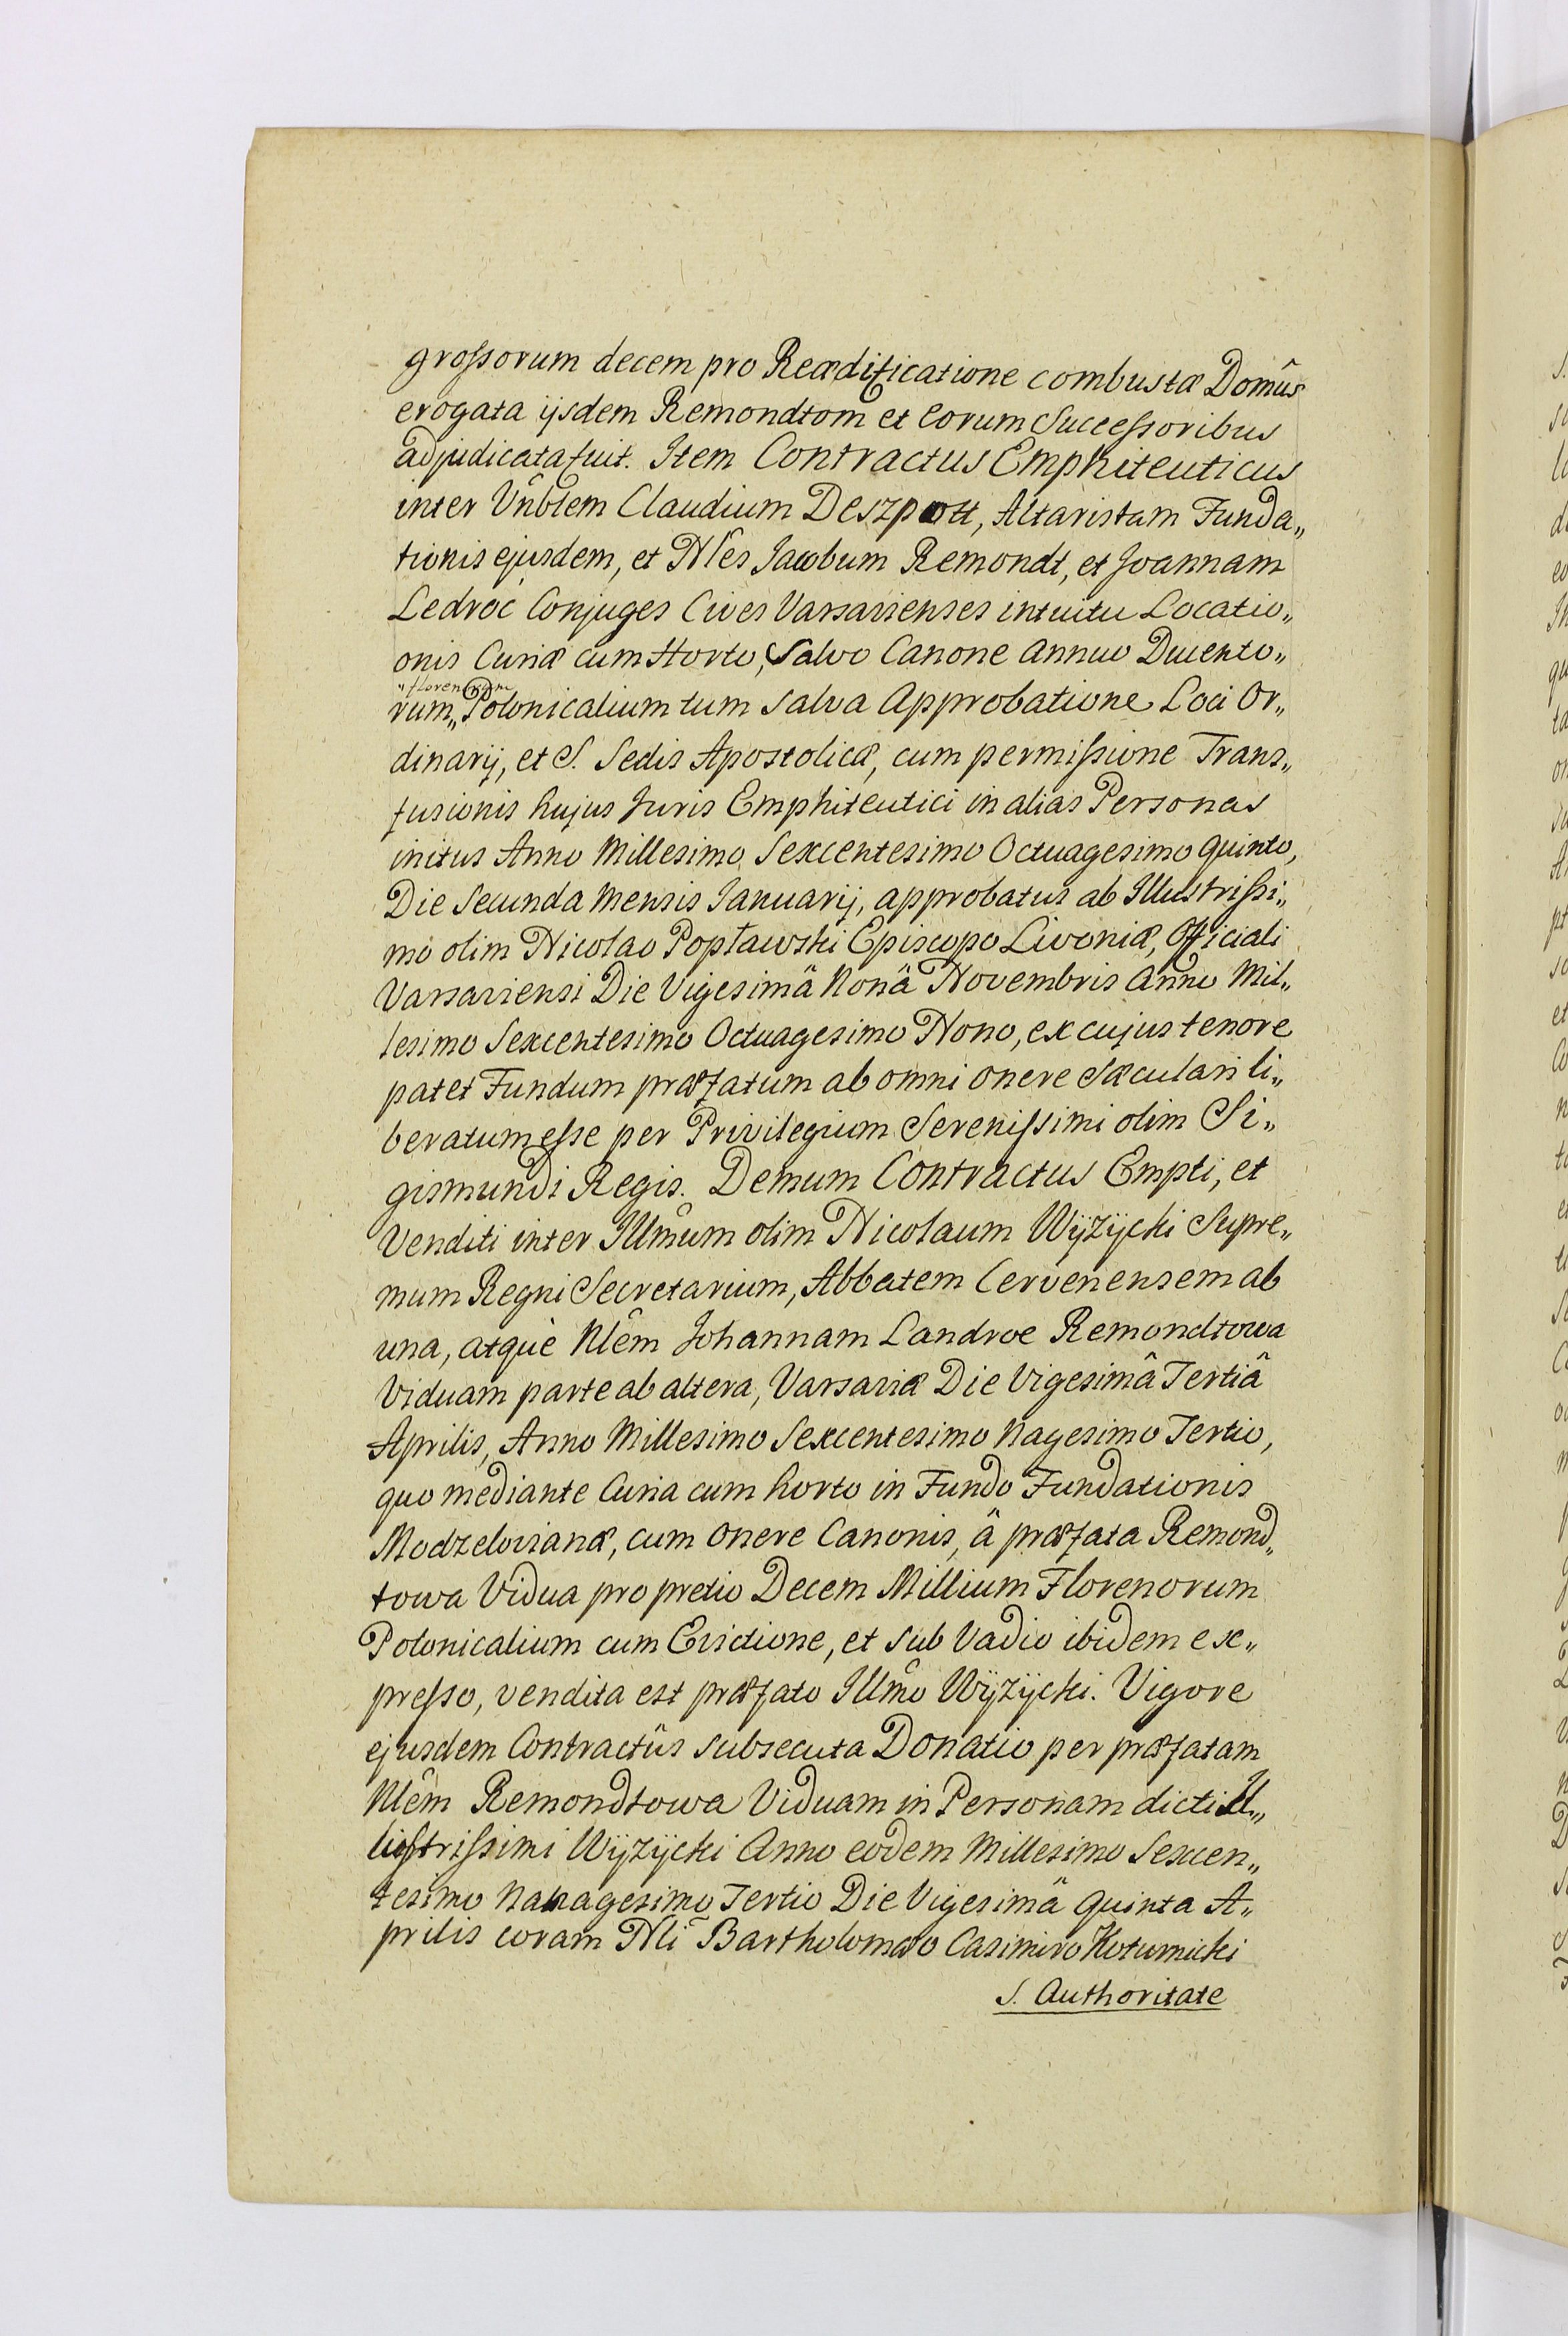 grossorum decem pro Reædificatione combustæ Domûs
erogata ijsdem Remondtom et eorum Successoribus
adjudicata fuit. Item Contractus Emphiteuticus
inter Vnblem Claudium Deszpott, Altaristam Funda„
tionis ejusdem, et Nles Jacobum Remondt, et Joannam
Ledroc Conjuges Cives Varsavienses intuitu Locatio„
onis Curiæ cum Horto, Salvo Canone annuo Ducento„
„florenorum
rum„ Polonicalium tum salva Approbatione Loci Or„
dinarij, et S. Sedis Apostolicæ, cum permissione Trans„
fusionis hujus Juris Emphiteutici in alias Personas
initus Anno Millesimo Sexcentesimo Octuagesimo quinto,
Die Secunda Mensis Januarij, approbatus ab Illustrissi„
mo olim Nicolao Popławski Episcopo Livoniæ, Officiali
Varsaviensi Die Vigesimâ Nonâ Novembris Anno Mil„
lesimo Sexcentesimo Octuagesimo Nono, ex cujus tenore
patet Fundum præfatum ab omni onere Sæculari li„
beratum esse per Privilegium Serenissimi olim Si„
gismundi Regis. Demum Contractus Empti, et
Venditi inter Illmum olim Nicolaum Wÿzÿcki Supre„
mum Regni Secretarium, Abbatem Cervenensem ab
una, atquè Nlêm Johannam Landroe Remondtowa
Viduam parte ab altera, Varsaviæ Die Vigesimâ Tertiâ
Aprilis, Anno Millesimo Sexcentesimo Nagesimo Tertio,
quo mediante Curia cum horto in Fundo Fundationis
Modzelovianæ, cum onere Canonis, â præfata Remond„
towa Vidua pro pretio Decem Millium Florenorum
Polonicalium cum Evictione, et sub Vadio ibidem ex„
presso, vendita est præfato Illmo Wÿzÿcki. Vigore
ejusdem Contractûs subsecuta Donatio per præfatam
Nlêm Remondtowa Viduam in Personam dicti Il„
lustrissimi Wÿzÿcki Anno eodem Millesimo Sexcen„
tesimo Nanagesimo Tertio Die Vigesimâ quinta A„
prilis coram Nli Bartholomæo Casimiro Koturnicki
S. Authoritate